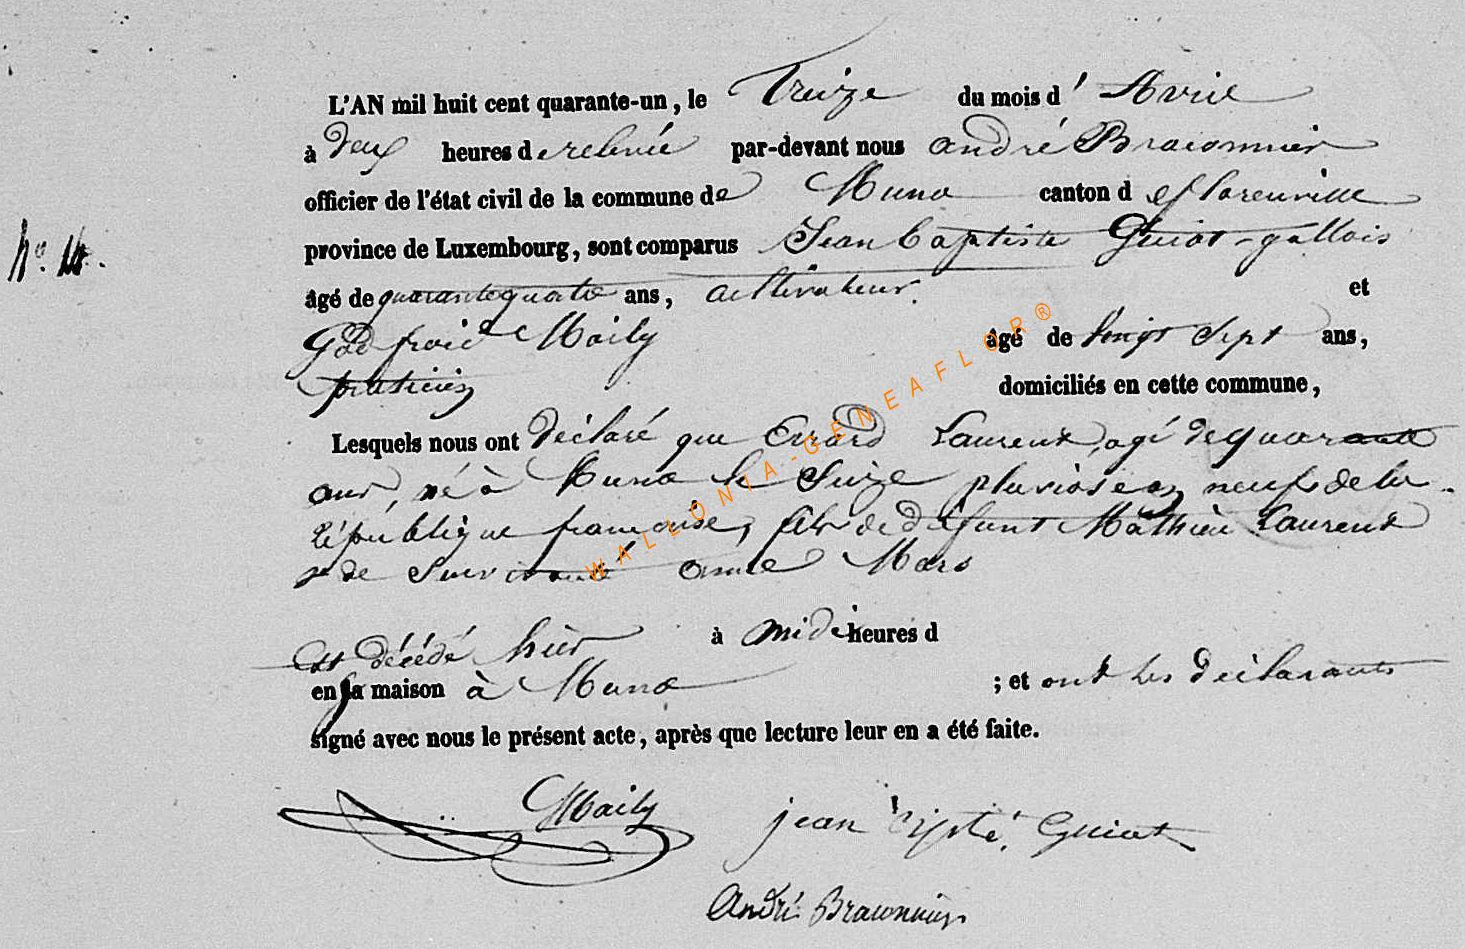 L'AN mil huit cent quarante-un, le Treize du mois d' Avril
à deux heures de relevée par-devant nous andré Braconnier
officier de l'état civil de la commune de Muno canton de florenville
province de Luxembourg, sont comparus Jean baptiste Guiot-gallois
âgé de quarante quatre ans, cultivateur. et
Godfroid Maily âgé de vingt sept ans,
praticien domiciliés en cette commune,
N° 14.
Lesquels nous ont déclaré que Errard Laurent, agé de quarante
ans, né à Muno le Seize pluviose an neuf de la
république française, fils de défunt Mathieu Laurent
& de Survivante anne Mars
est décédé hier à midi heures d
en sa maison à Muno ; et ont les déclarants
signé avec nous le présent acte, après que lecture leur en a été faite.
GMaily jean Guiot
André Braconnier
WALLONIA-GENEAFLOR®